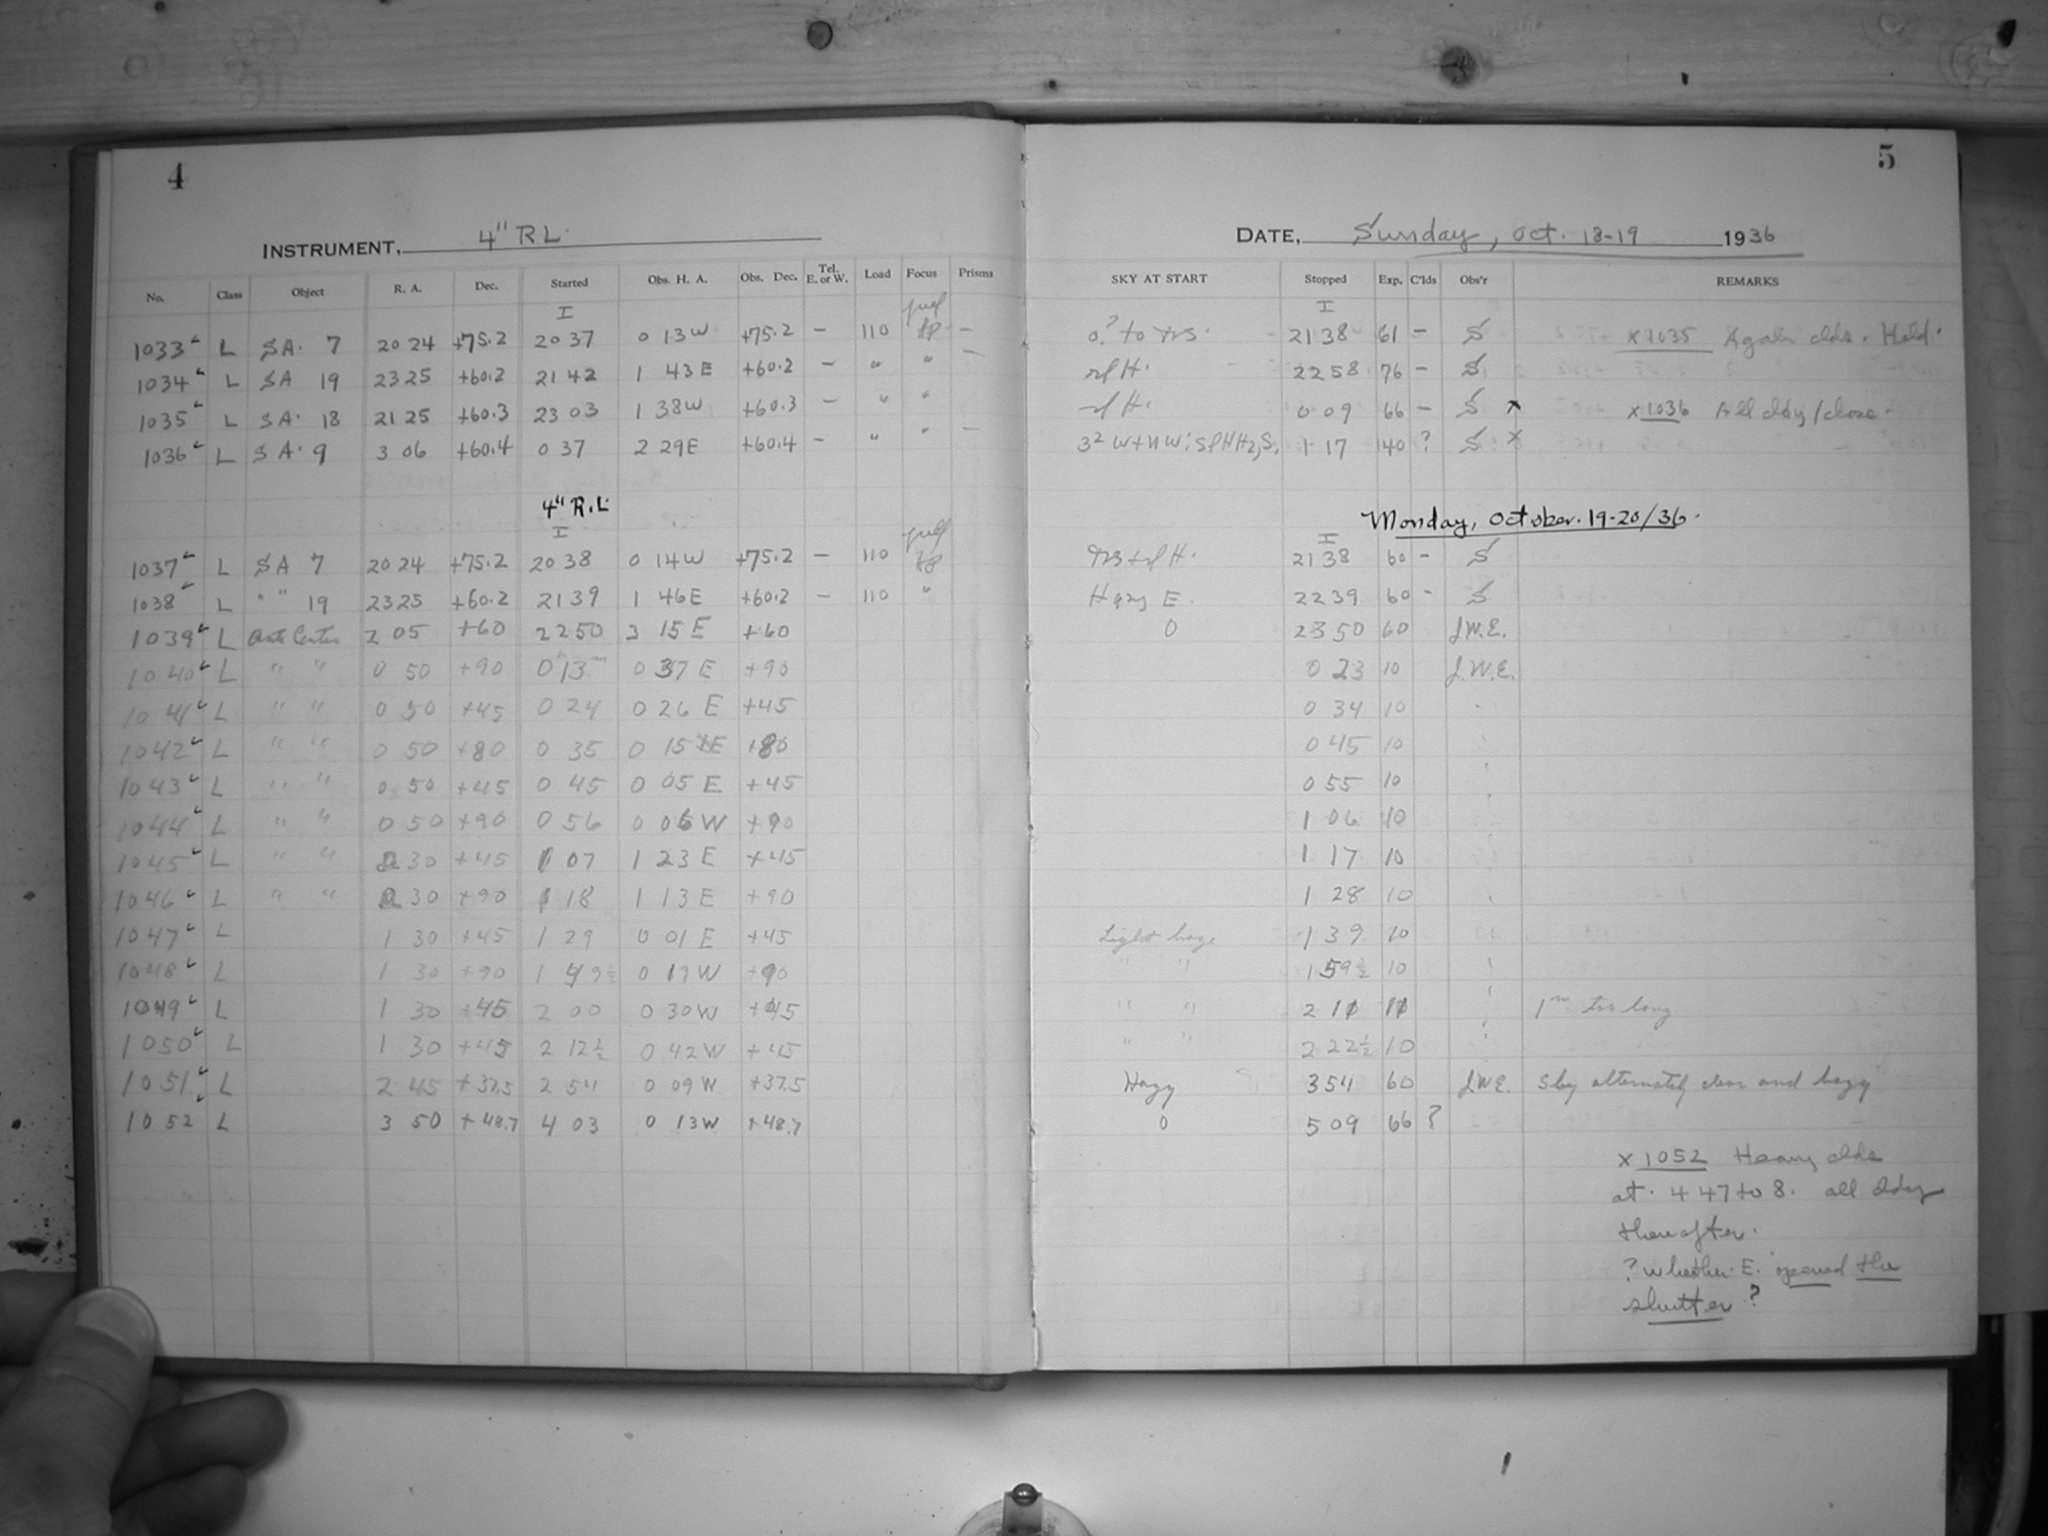 4
INSTRUMENT, 4" R L.
No. Class Object R. A. Dec. Started Obs. H. A. Obs. Dec. Tel. E. or W. Load Focus Prisms
I
1033 L SA. 7 20 24 +75.2 20 37 0 13 W +75.2 - 110 -
1034 L SA 19 23 25 +60.2 21 42 1 43 E +60.2 - " " -
1035 L SA. 18 21 25 +60.3 23 03 1 38 W +60.3 - " "
1036 L SA. 9 3 06 +60.4 0 37 2 29 E +60.4 - " " -
4" R.L.
I
1037 L SA 7 20 24 +75.2 20 38 0 14 W +75.2 - 110
1038 L " " 19 23 25 +60.2 21 39 1 46 E +60.2 - 110 "
1039 L Anti Center 2 05 +60 22 50 3 15 E +60
1040 L " " 0 50 +90 0 13 0 37 E +90
1041 L " " 0 50 +45 0 24 0 26 E +45
1042 L " " 0 50 +80 0 35 0 15 E +80
1043 L " " 0 50 +45 0 45 0 05 E +45
1044 L " " 0 50 +90 0 56 0 06 W +90
1045 L " " 2 30 +45 1 07 1 23 E +45
1046 L " " 2 30 +90 1 18 1 13 E +90
1047 L 1 30 +45 1 29 0 01 E +45
1048 L 1 30 +90 1 49½ 0 19 W +90
1049 L 1 30 +45 2 00 0 30 W +45
1050 L 1 30 +45 2 12½ 0 42 W +45
1051 L 2 45 +37.5 2 54 0 09 W +37.5
1052 L 3 50 +48.7 4 03 0 13 W +48.7
5
DATE, Sunday, Oct. 18-19 1936
SKY AT START Stopped Exp. C'lds Obs'r REMARKS
I
0? to trs. 21 38 61 - S x 1035 Again clds. Held.
sl H. 22 58 76 - S
sl H. 0 09 66 - S x x 1036 All cldy/close.
1 17 140 ? S x
Monday, October. 19-20/36.
I
trs + sl H. 21 38 60 - S
Hazy E. 22 39 60 - S
0 23 50 60 J.W.E.
0 23 10 J.W.E.
0 34 10
0 45 10
0 55 10
1 06 10
1 17 10
1 28 10
Light haze 1 39 10
" " 1 59½ 10
" " 2 11 11 1m too long
" " 2 22½ 10
Hazy 3 54 60 J.W.E. Sky alternately clear and hazy
0 5 09 66 ?
x 1052 Heavy clds
at. 4 47 to 8. all cldy
thereafter.
? Whether E. opened the
shutter ?